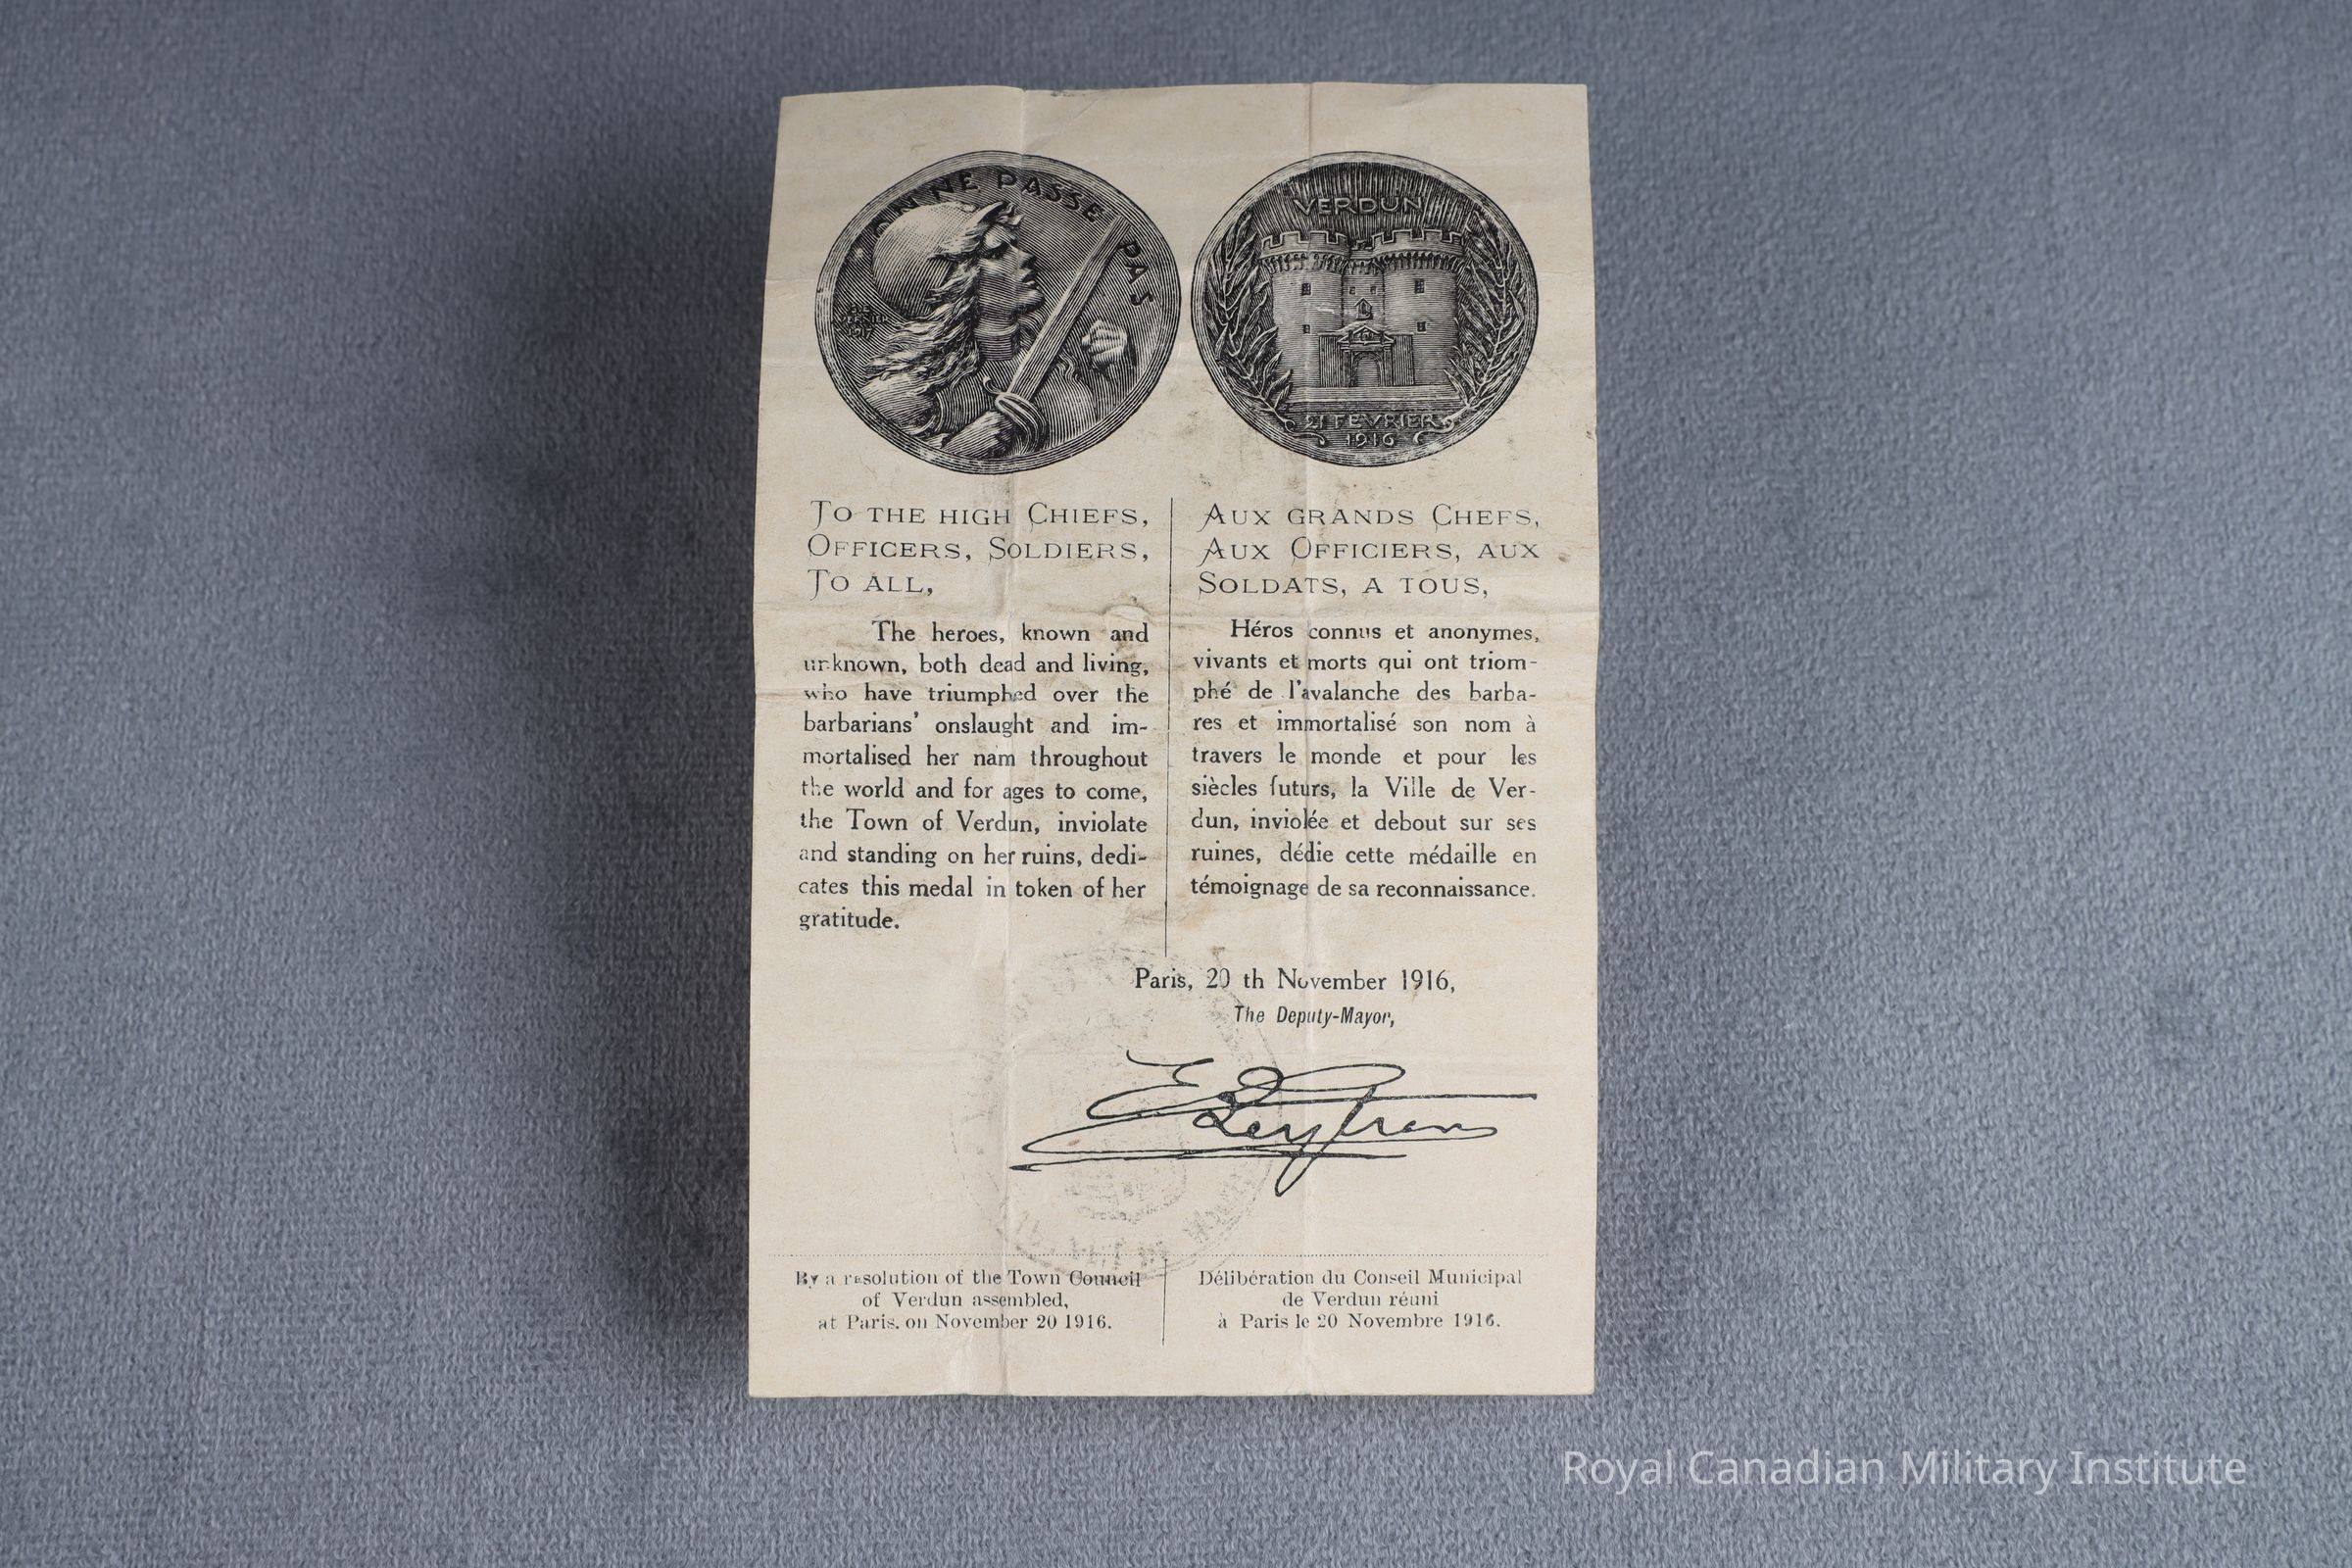 ON NE PASSE PAS
VERNIER
1917
VERDUN
21 FEVRIER
1916
To the high Chiefs,
Officers, Soldiers,
To all,
The heroes, known and
unknown, both dead and living,
who have triumphed over the
barbarians' onslaught and im-
mortalised her nam throughout
the world and for ages to come,
the Town of Verdun, inviolate
and standing on her ruins, dedi-
cates this medal in token of her
gratitude.
Aux grands Chefs,
Aux Officiers, aux
Soldats, a tous,
Héros connus et anonymes,
vivants et morts qui ont triom-
phé de l'avalanche des barba-
res et immortalisé son nom à
travers le monde et pour les
siècles futurs, la Ville de Ver-
dun, inviolée et debout sur ses
ruines, dédie cette médaille en
témoignage de sa reconnaissance.
Paris, 20 th November 1916,
The Deputy-Mayor,
By a resolution of the Town Council
of Verdun assembled,
at Paris. on November 20 1916.
Délibération du Conseil Municipal
de Verdun réuni
à Paris le 20 Novembre 1916.
Royal Canadian Military Institute